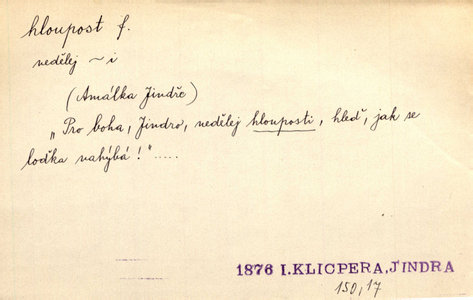 hloupost f.
nedělej ~ i
(Amálka Jindře)
„Pro boha, Jindro, nedělej hlouposti, hleď, jak se
loďka nahýbá!".....
1876 I.KLICPERA, JINDRA
150,17